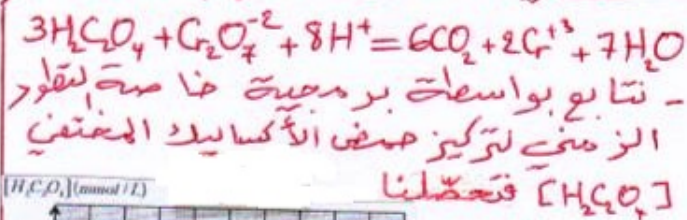 3H₂C₂O₄ + Cr₂O₇⁻² + 8H⁺ = 6CO₂ + 2Cr⁺³ + 7H₂O
- نتابع بواسطة برمجية خاصة لتطور
الزمني لتركيز حمض الأكساليك المختفي
[H₂C₂O₄] فتحصلنا
[H₂C₂O₄](mmol/L)